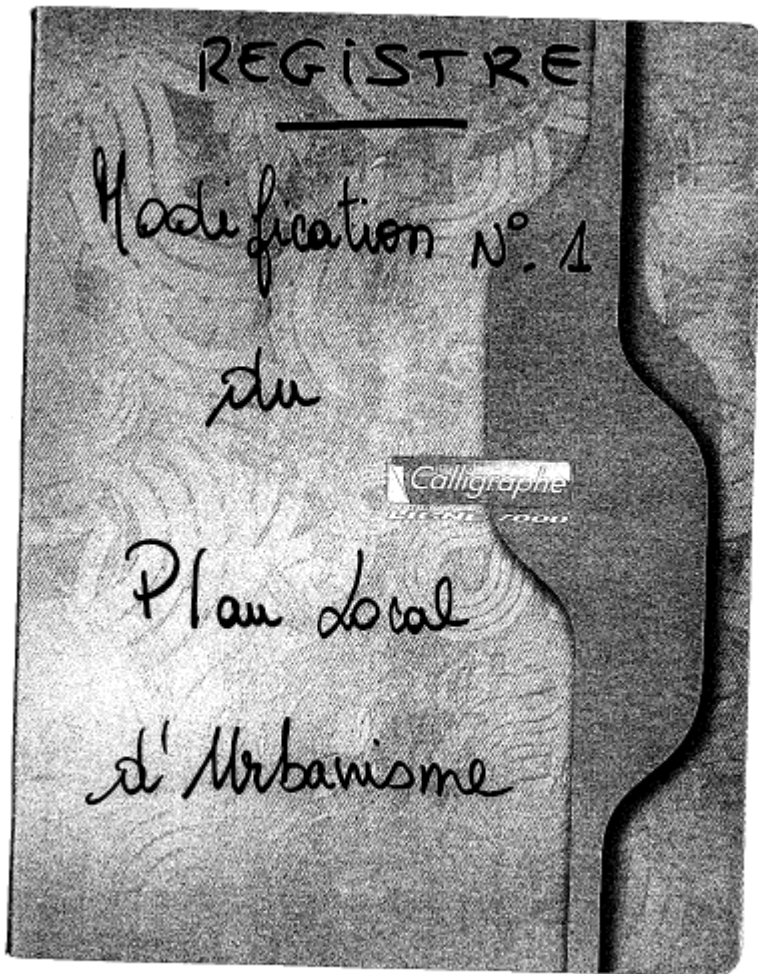 REGiSTRE
Modification N°. 1
du
Calligraphe
LIGNE 7000
Plan Local
d'Urbanisme